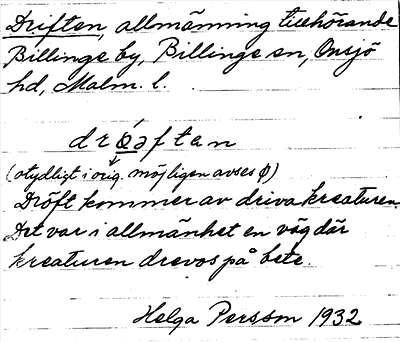 Driften, allmänning tillhörande
Billinge by, Billinge sn, Onsjö
hd, Malm. l.
dròəftan
(otydligt i orig. möjligen avses ø)
Dröft kommer av driva kreaturen.
Det var i allmänhet en väg där
kreaturen drevos på bete.
Helga Persson 1932